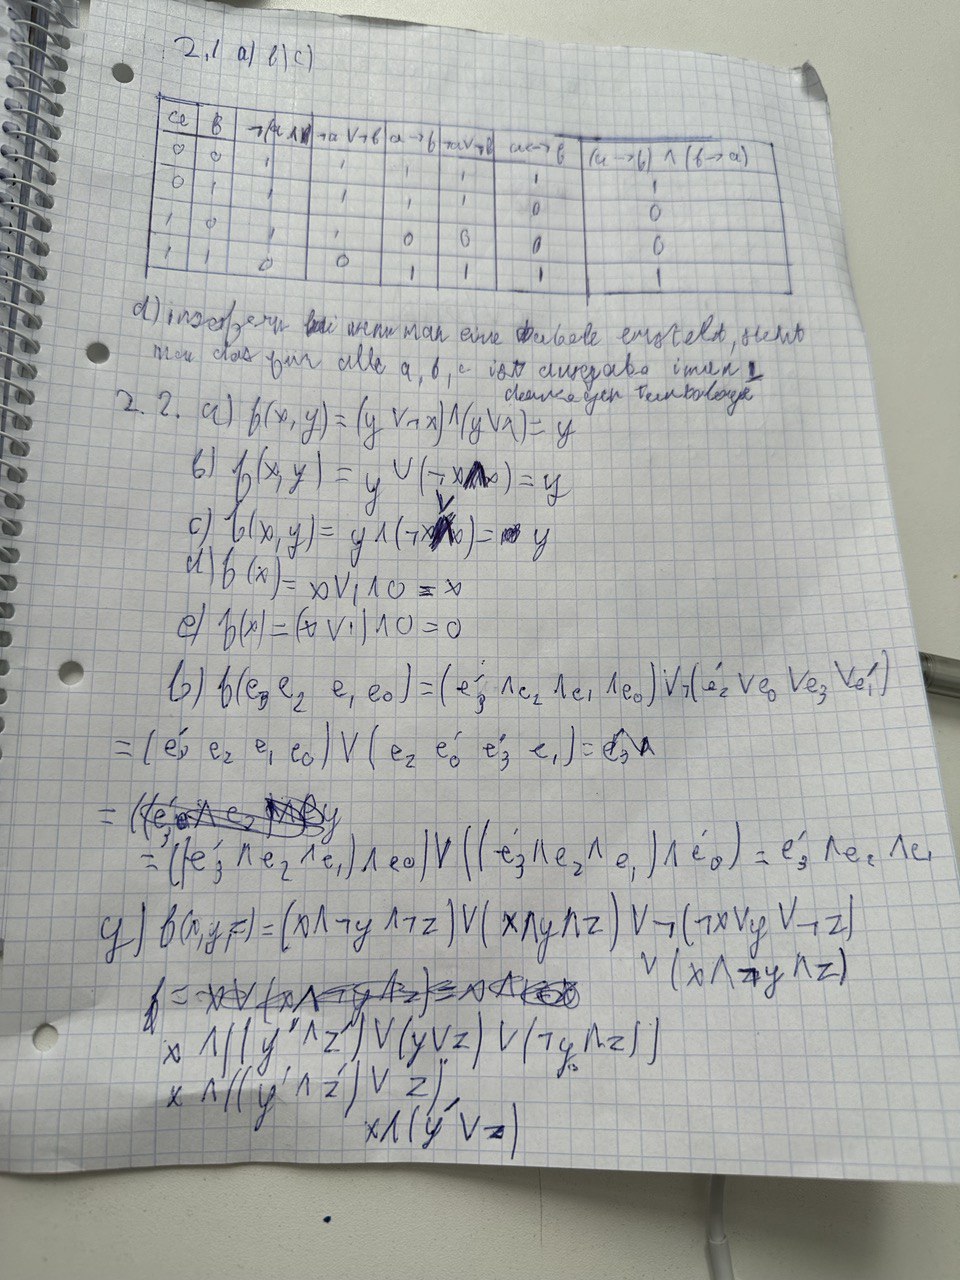 2.1 a) b) c)
a b ¬(a∧b) ¬a∨¬b a→b ¬a∨b a↔b (a→b) ∧ (b→a)
0 0 1 1 1 1 1 1
0 1 1 1 1 1 0 0
1 0 1 1 0 0 0 0
1 1 0 0 1 1 1 1
d) insofern wenn man eine tabele erstelt, sieht
man das für alle a, b, c ist ausgabe imer 1
deswegen Tautologie
2.2. a) f(x,y)=(y∨¬x)∧(y∨x)=y
b) f(x,y) = y∨(¬x∧x)=y
c) f(x,y)= y∧(¬x∨x)= y
d) f(x)= x∨1∧0 = x
e) f(x)=(x∨1)∧0=0
f) f(e3 e2 e1 e0)=(e3' ∧e2 ∧e1 ∧e0)∨¬(e2' ∨e0 ∨e3 ∨e1')
=(e3' e2 e1 e0)∨(e2 e0' e3' e1)=e3'∧
=((e3'∧e2∧e1)∧e0)∨((e3'∧e2∧e1)∧e0')=e3'∧e2∧e1
g) f(x,y,z)=(x∧¬y∧¬z)∨(x∧y∧z)∨¬(¬x∨y∨¬z)
∨(x∧¬y∧z)
x∧((y'∧z')∨(y∨z)∨(¬y∧z))
x∧((y'∧z')∨z)
x∧(y'∨z)